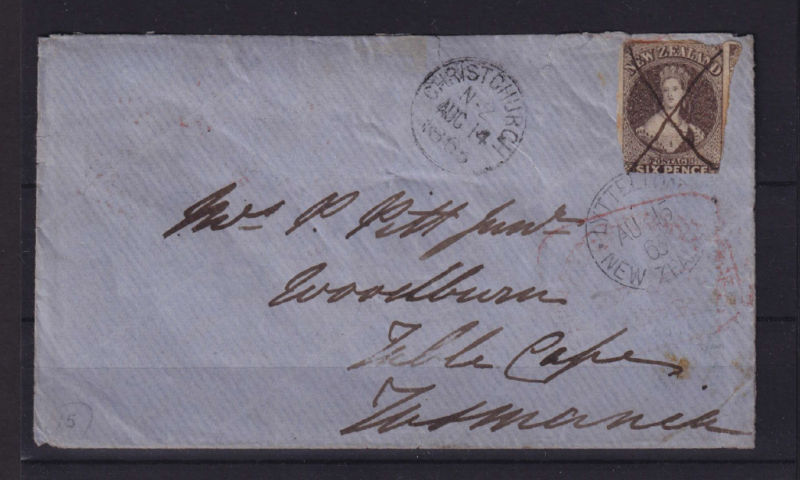 CHRISTCHURCH
N-Z
AUG 14
NEW ZEALAND
POSTAGE
SIX PENCE
LYTTELTON
AU 15
NEW ZEA
Mrs P. Pitt Junr
Woodburn
Table Cape
Tasmania
15